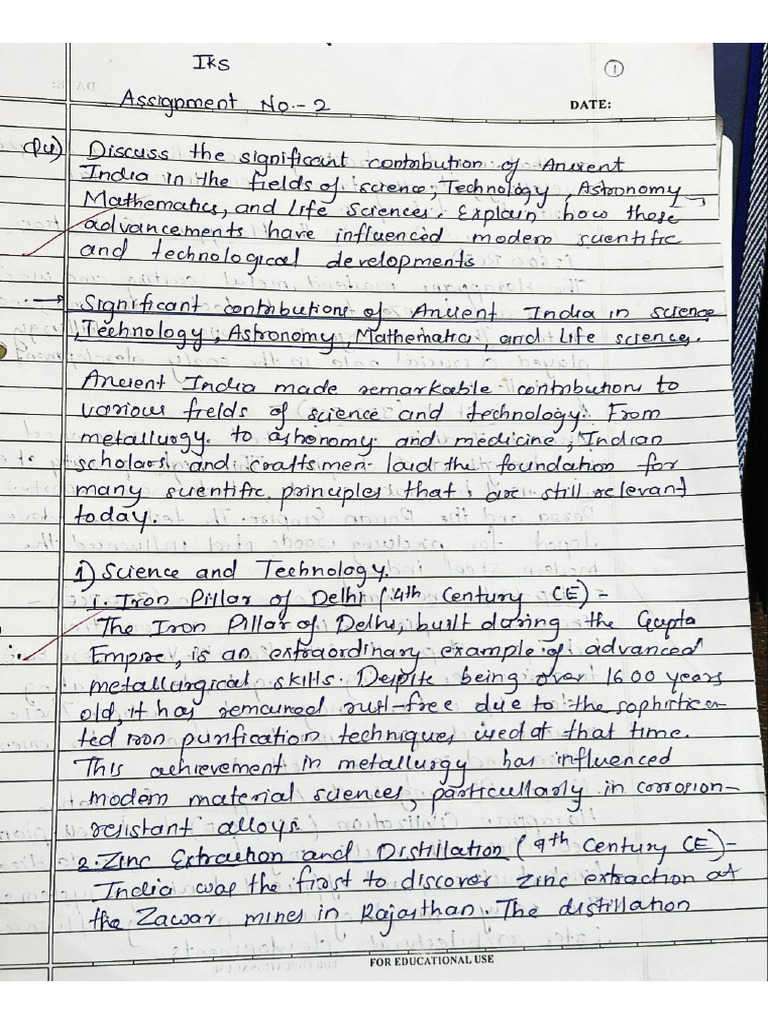 IKS
1
Assignment No:- 2
DATE:
Q4) Discuss the significant contribution of Ancient
India in the fields of science, Technology, Astronomy,
Mathematics, and Life Sciences. Explain how these
advancements have influenced modern scientific
and technological developments
→ Significant contributions of Ancient India in science
, Technology, Astronomy, Mathematics, and Life sciences.
Ancient India made remarkable contributions to
various fields of science and technology. From
metallurgy to astronomy and medicine, Indian
scholars and craftsmen laid the foundation for
many scientific principles that are still relevant
today.
1) Science and Technology.
1. Iron Pillar of Delhi (4th Century CE) -
The Iron Pillar of Delhi, built during the Gupta
Empire, is an extraordinary example of advanced
metallurgical skills. Despite being over 1600 years
old, it has remained rust-free due to the sophistica-
ted iron purification techniques used at that time.
This achievement in metallurgy has influenced
modern material sciences, particularly in corrosion-
resistant alloys.
2. Zinc Extraction and Distillation (9th Century CE) -
India was the first to discover zinc extraction at
the Zawar mines in Rajasthan. The distillation
FOR EDUCATIONAL USE